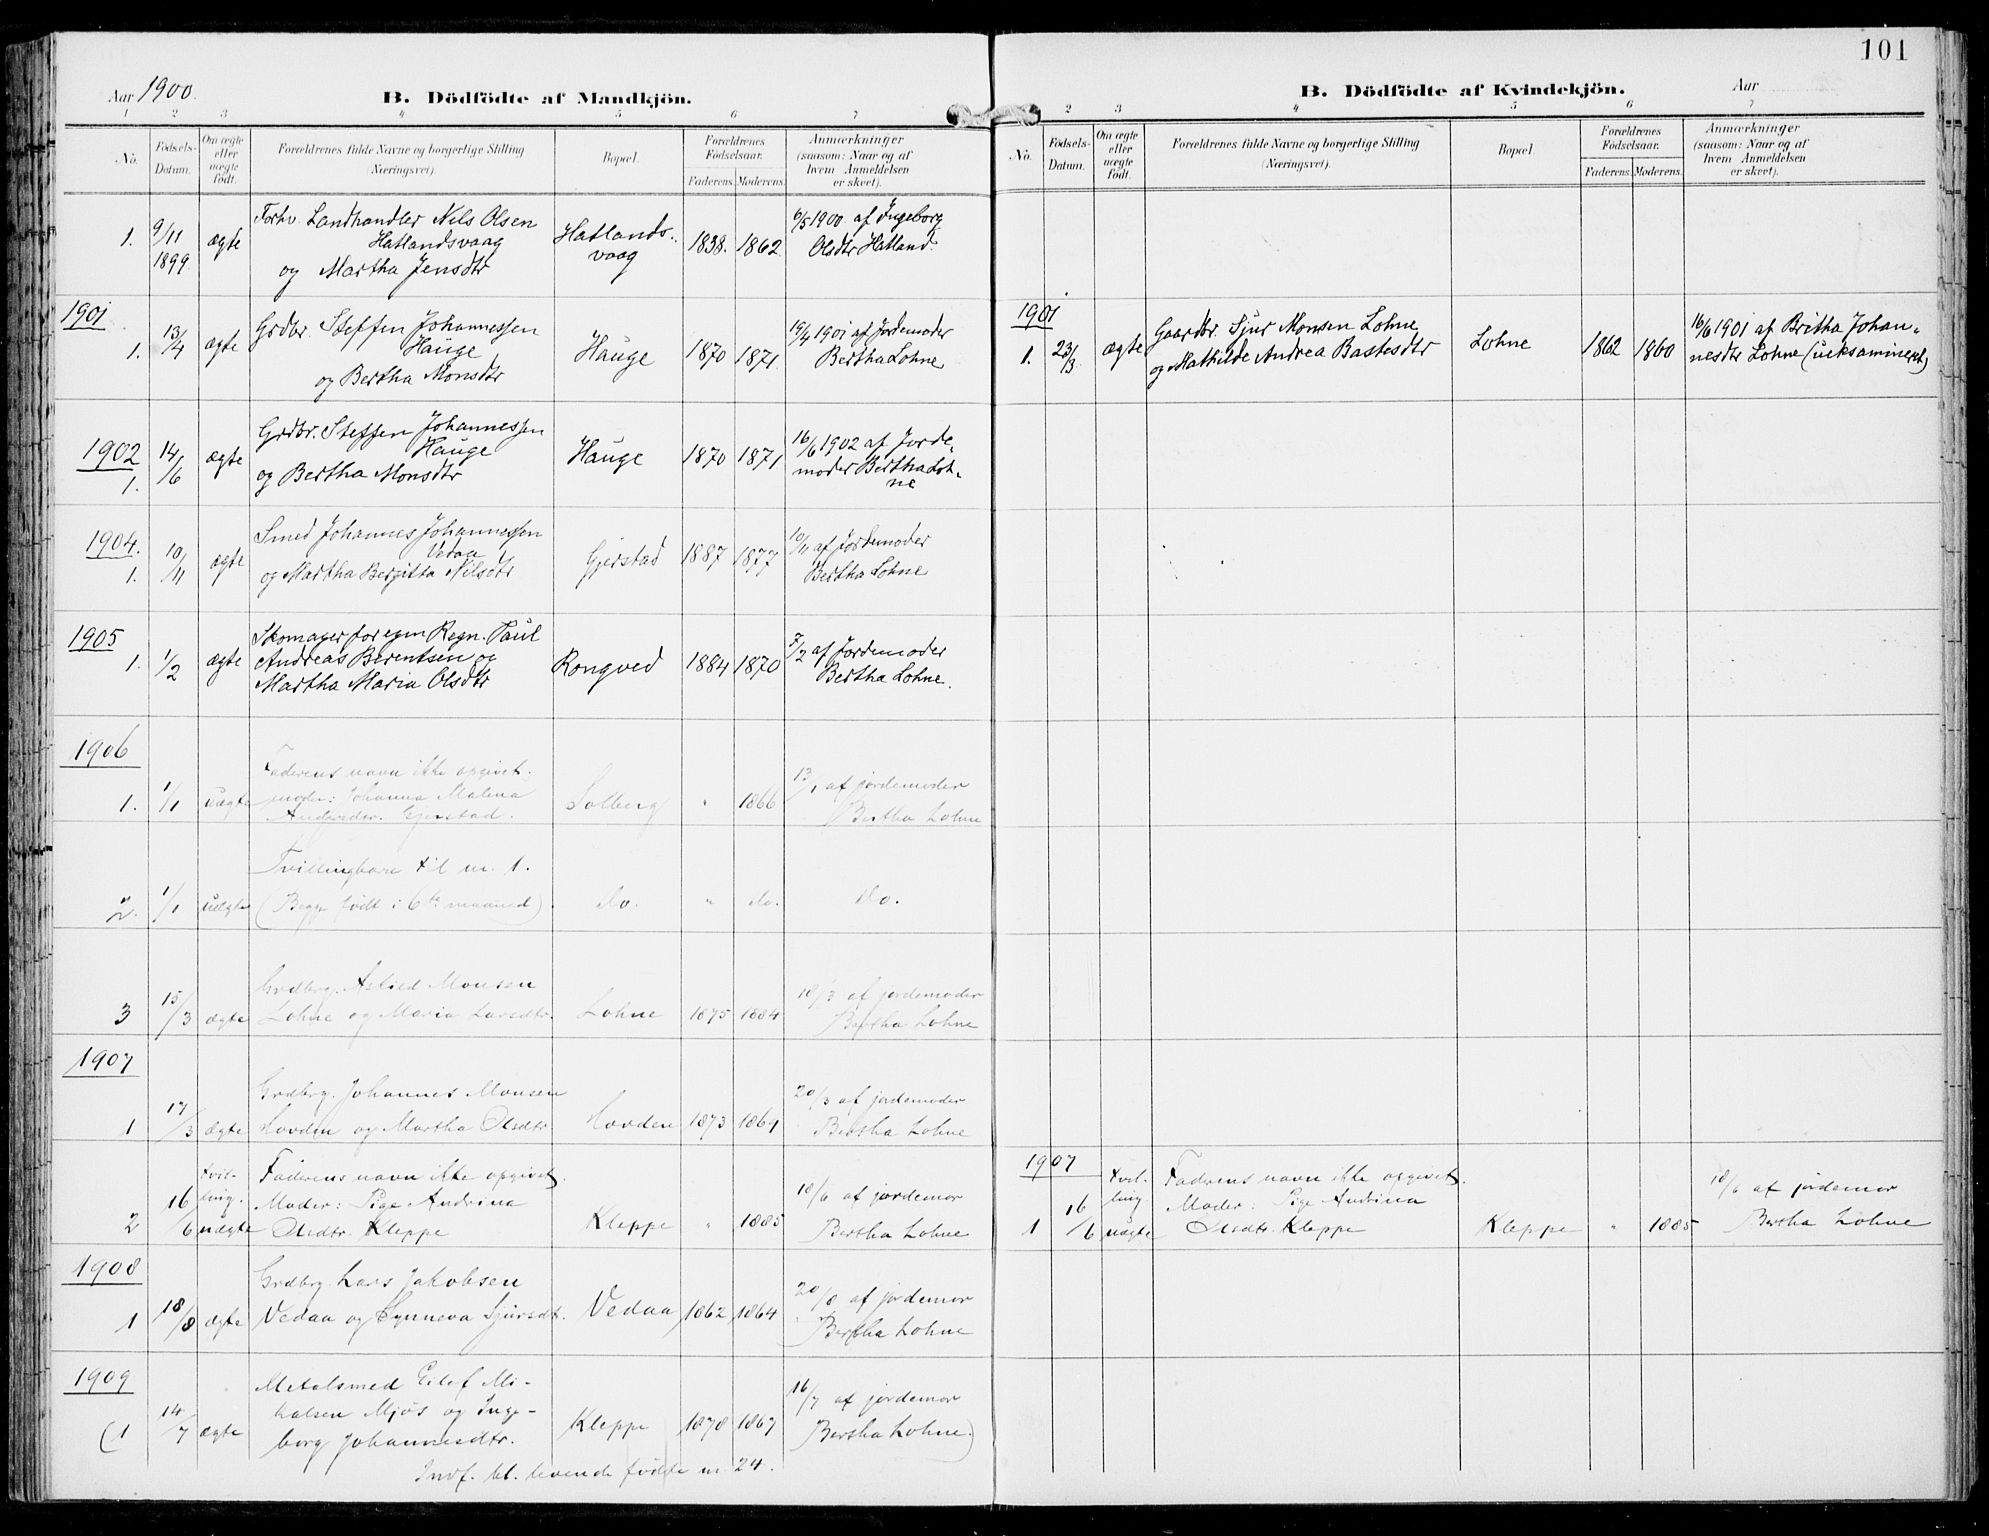 101
Aar 1900.
B. Dödfödte af Mandkjön.
1 2 3 4 5 6 7
No.
Födsels-
Datum.
Om ægte
eller
uægte
födt.
Forældrenes fulde Navne og borgerlige Stilling
(Næringsvei).
Bopæl.
Forældrenes
Födselsaar.
Faderens. Moderens.
Anmærkninger
(saasom: Naar og af
hvem Anmeldelsen
er skeet).
1. 9/11 1899 ægte
Forhv. Landhandler Nils Olsen
Hatlandsvaag
og Martha Jensdtr
Hatlands-
vaag
1838. 1862.
6/5 1900 af Ingeborg
Olsdtr Hatland.
1901
1. 13/4 ægte
Grdbr. Steffen Johannessen
Hauge
og Bertha Monsdtr
Hauge 1870 1871.
19/4 1901 af Jordemoder
Bertha Lohne
1902
1. 14/6 ægte
Grdbr. Steffen Johannessen
Hauge
og Bertha Monsdtr
Hauge 1870 1871
16/6 1902 af Jorde-
moder Bertha Loh-
ne
1904.
1. 10/11 ægte
Smed Johannes Johannessen
Vedaa
og Martha Bergitta Nilsdtr
Gjerstad 1887 1877
10/11 af Jordemoder
Bertha Lohne
1905
1. 1/2 ægte
Skomager for egen Regn. Paul
Andreas Berentsen og
Martha Maria Olsdtr
Rongved 1884 1870
7/2 af Jordemoder
Bertha Lohne.
1906
1. 1/1 uægte
Faderens navn ikke opgivet.
moder: Johanna Malena
Andersdtr. Gjerstad.
Solberg " 1866
13/1 af jordemoder
Bertha Lohne
2. 1/1 uægte
Tvillingbarn til nr. 1.
(Begge født i 6te maaned)
do. " do. Do.
3 15/3 ægte
Grdbrg. Monsen
Lohne og Maria Larsdtr.
Lohne 1875 1884
18/3 af jordemoder
Bertha Lohne
1907
1 17/3 ægte
Grdbrg. Johannes Monsen
Hovden og Martha Olsdtr.
Hovden 1873 1869
20/3 af jordemoder
Bertha Lohne
2 16/6 tvil-
ling.
uægte
Faderens navn ikke opgivet.
Moder: Pige Andrina
Olsdtr. Kleppe
Kleppe " 1885
18/6 af jordemor
Bertha Lohne
1908
1 18/8 ægte
Grdbrg. Lars Jakobsen
Vedaa og Synneva Sjursdt.
Vedaa 1862 1864
20/8 af jordemor
Bertha Lohne
1909
(1 14/7 ægte
Metalsmed Eilef Mi-
kalsen Mjøs og Inge-
borg Johannesdtr.
Kleppe 1878 1867
16/7 af jordemor
Bertha Lohne.)
Indf. bl. levende fødte nr. 24.
B. Dödfödte af Kvindekjön.
Aar
2 3 4 5 6 7
No.
Födsels-
Datum.
Om ægte
eller
uægte
födt.
Forældrenes fulde Navne og borgerlige Stilling
(Næringsvei).
Bopæl.
Forældrenes
Födselsaar.
Faderens. Moderens.
Anmærkninger
(saasom: Naar og af
hvem Anmeldelsen
er skeet).
1901
1. 23/3 ægte
Gaardbr. Sjur Monsen Lohne
og Mathilde Andrea Bastesdtr
Lohne 1862 1860
16/6 1901 af Britha Johan-
nesdtr Lohne (ueksamineret)
1907
1 16/6 tvil-
ling
uægte
Faderens navn ikke opgivet.
Moder: Pige Andrina
Olsdtr. Kleppe
Kleppe " 1885
18/6 af jordemor
Bertha Lohne